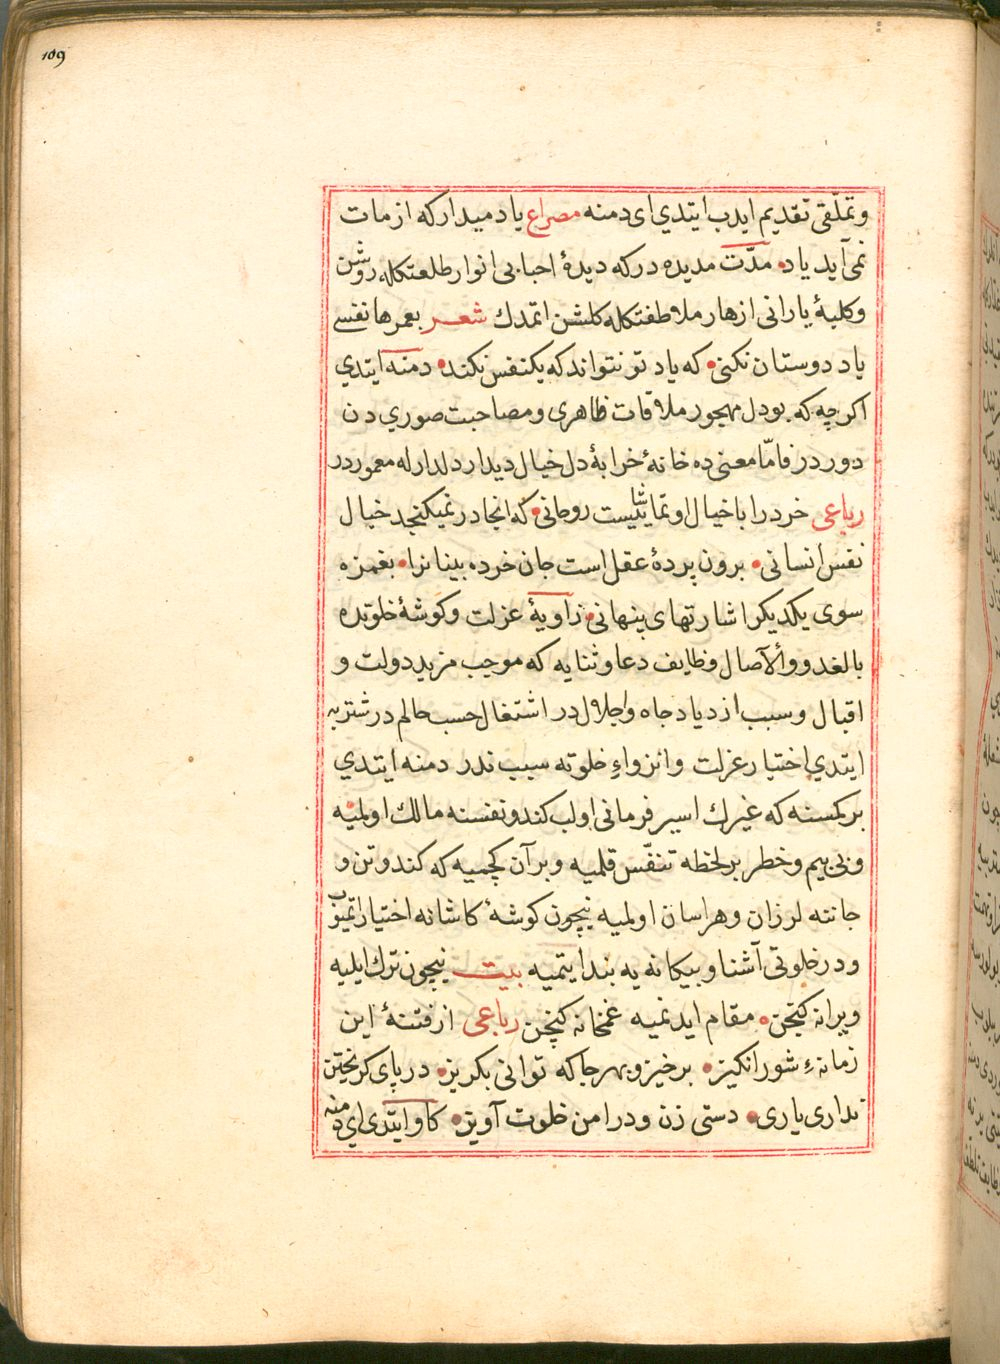 109
وتملّقی تقدیم ایدب ایتدی ای دمنه مصراع یاد میدار که از مات
نمی آید یاد مدّت مدیده در که دیدهٔ احبابی انوار طلعتکله روشن
وکلبهٔ یارانی ازهار ملاطفتکله کلشن اتمدك شعر بعمرها نفسی
یاد دوستان نکنی که یاد تو نتواند که یکنفس نکند دمنه ایتدی
اکرچه که بودل مهجور ملاقات ظاهری ومصاحبت صوری دن
دور در فامّا معنی ده خانهٔ خرابهٔ دل خیال دیدار دلدارله معمور در
رباعی خرد را با خیال او تماشائیست روحانی که انجا در نمیکنجد خیال
نفس انسانی برون پردهٔ عقل است جان خرده بینانرا بغمزه
سوی یکدیکر اشارتهای پنهانی زاویهٔ عزلت وکوشهٔ خلوتده
بالغدو والآصال وظایف دعا وثنایه که موجب مزید دولت و
اقبال وسبب ازدیاد جاه واجلال در اشتغال حسب حالم در شتربه
ایتدی اختیار عزلت وانزواء خلوته سبب ندر دمنه ایتدی
برکسنه که غیرك اسیر فرمانی اولب کندو نفسنه مالك اولمیه
وبی بیم وخطر بر لحظه تنفّس قلمیه وبر آن کچمیه که کندو تن و
جاننه لرزان وهراسان اولمیه نیچون کوشهٔ کاشانه اختیار اتمیوب
ودر خلوتی آشنا وبیکانه یه بند ایتمیه بیت نیچون ترك ایلیه
ویرانه کنجن مقام ایدنمیه غمخانه کنجن رباعی از فتنهٔ این
زمانهٔ شورانکیز برخیز وبهر جا که توانی بکریز در پای کریختن
نداری یاری دستی زن ودر دامن خلوت آویز کاو ایتدی ای دمنه